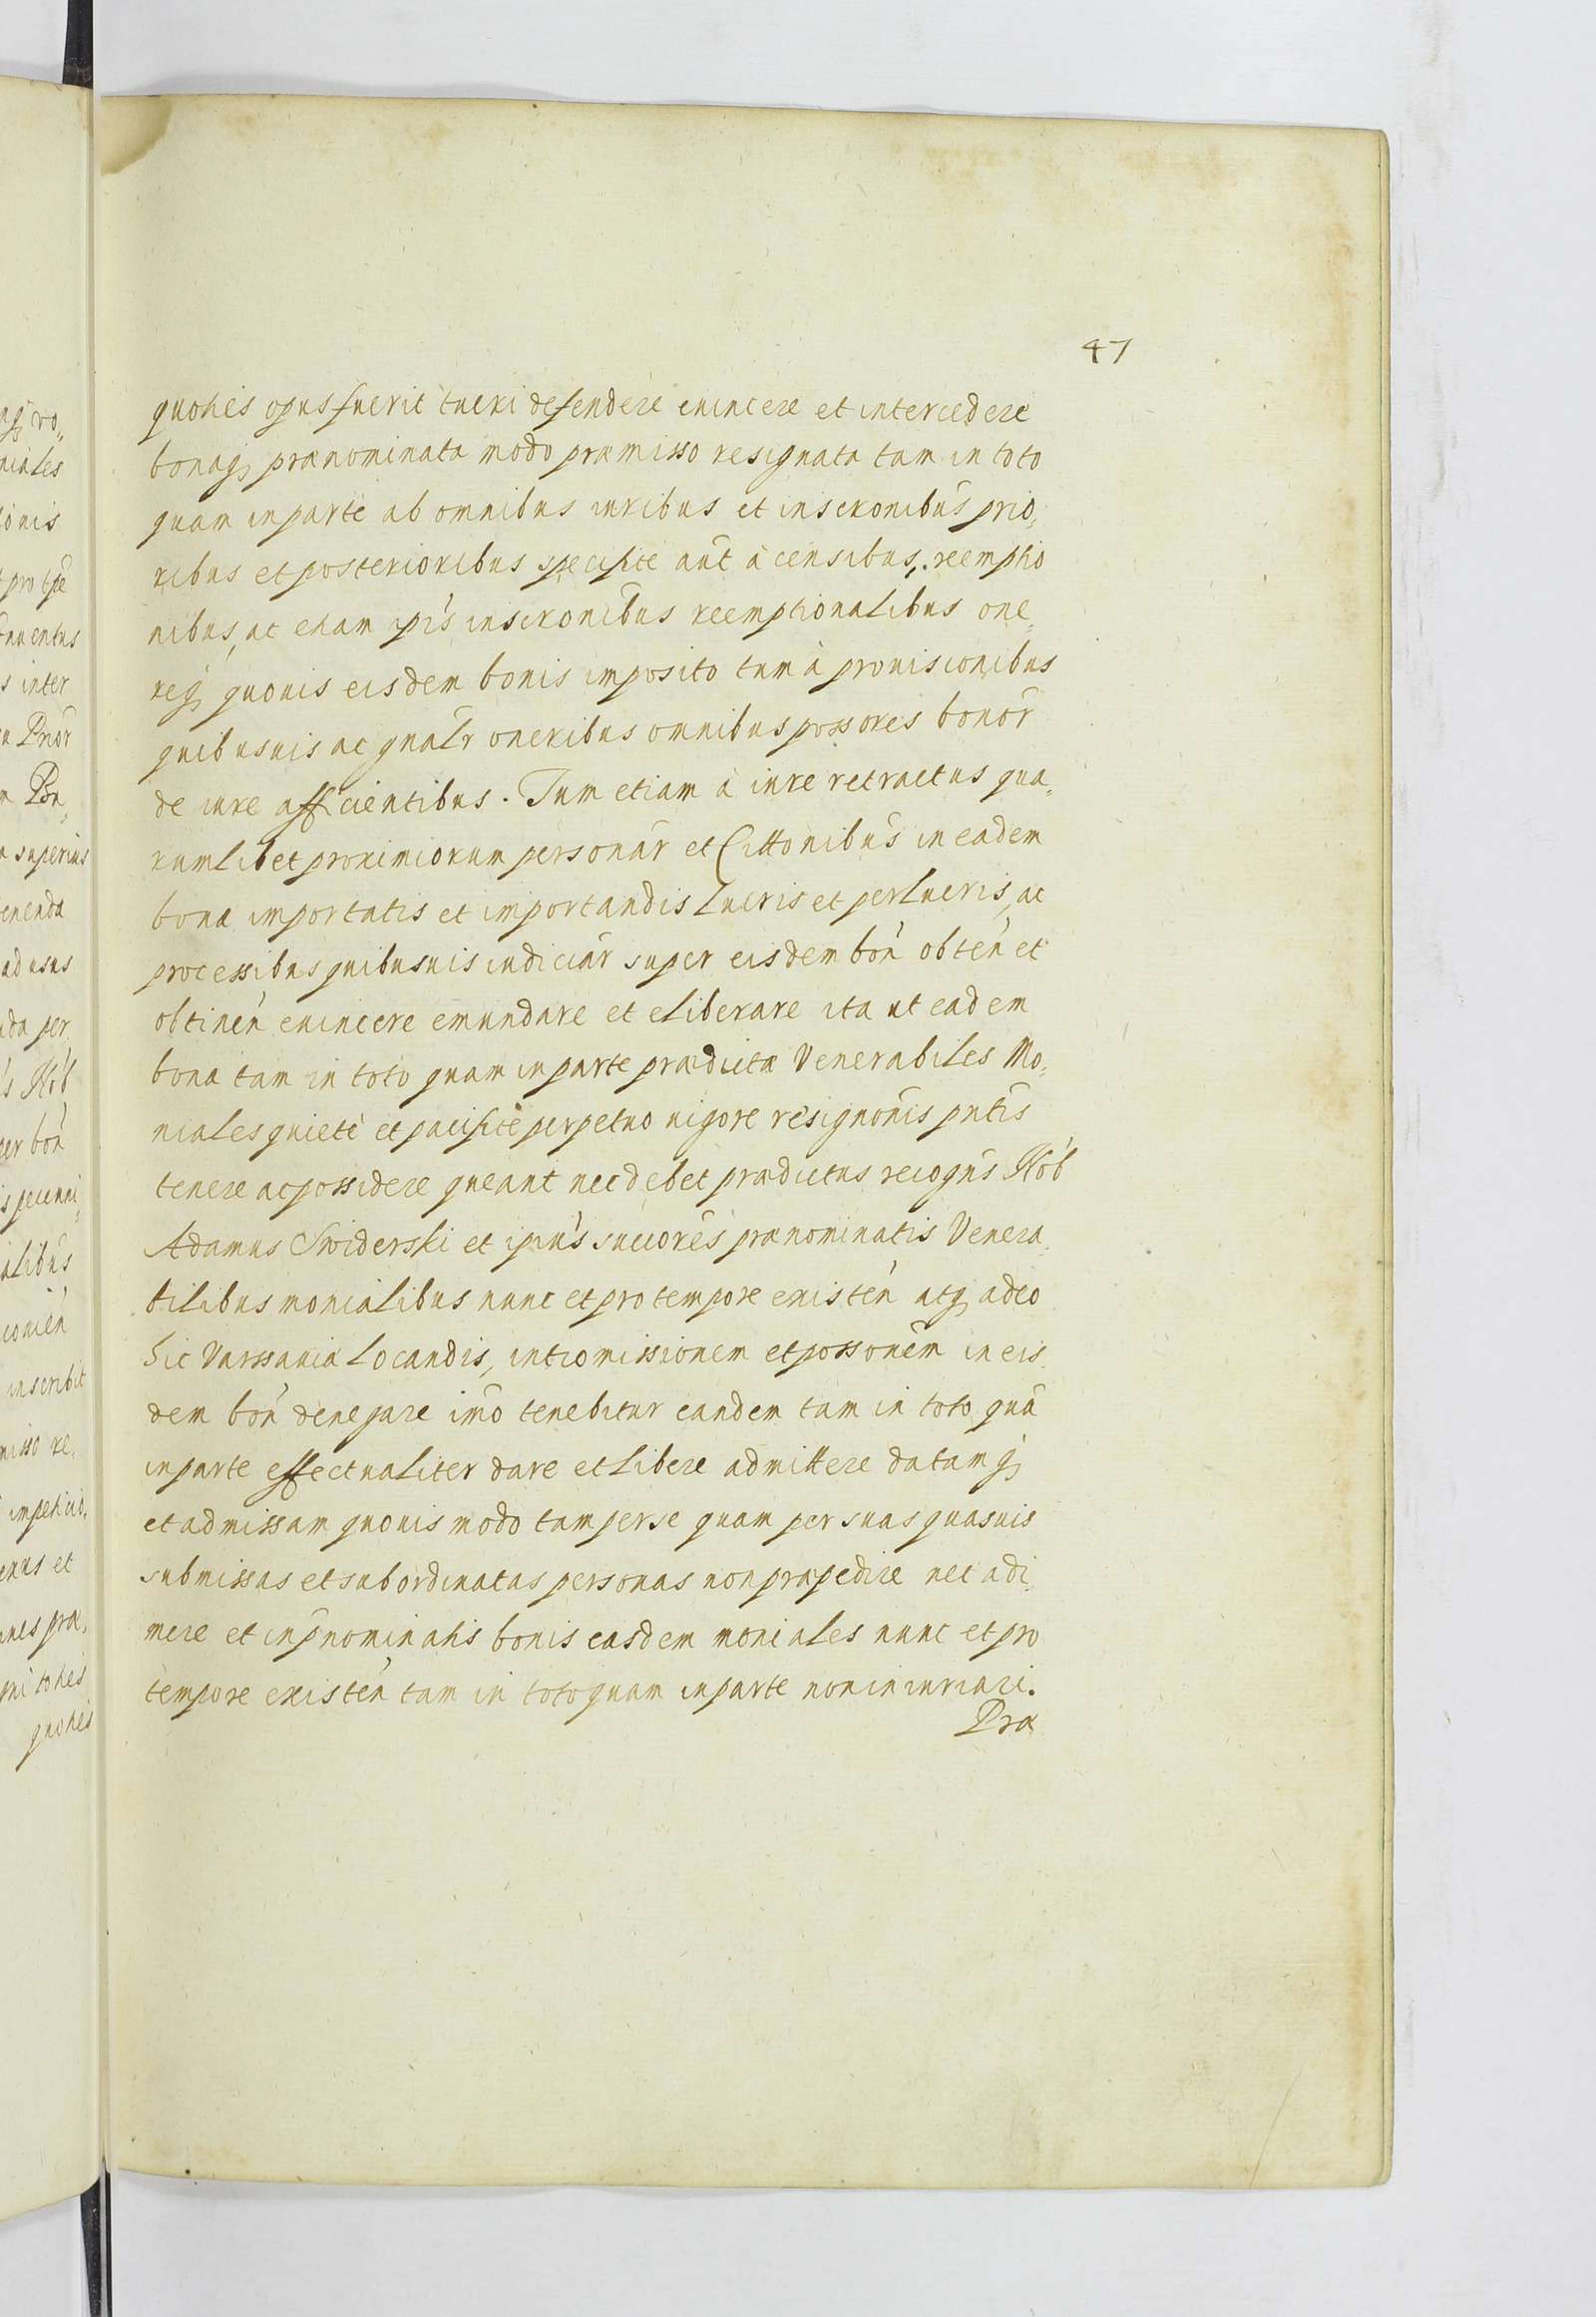 47
quoties opus fuerit tueri defendere euincere et intercedere
bonaq̃ prænominata modo præmisso resignata tam in toto
quam in parte ab omnibus iuribus et inscrōnibus prio,
ribus et posterioribus specifice aūt à censibus, reemptio
nibus, ac etiam ipīs inscrōnibus reemptionalibus one,
req̃ quouis eisdem bonis imposito tum à prouisionibus
quibusuis ac gnalr̃ oneribus omnibus possores bonōr
de iure afficientibus. Tum etiam à iure retractus qua,
rumlibet proximiorum personār et Cittōnibus in eadem
bona importatis et importandis lucris et perlucris, ac
processibus quibusuis iudiciār super eisdem boñ obteñ et
obtineñ euincere emundare et eliberare ita ut eadem
bona tam in toto quam in parte prædictæ Venerabiles Mo,
niales quietè et pacificè perpetuo uigore resignōnis pn̄tis
tenere ac possidere queant nec debet prædictus recogn̄s Nōb
Adamus Swiderski et ipiūs succōres prænominatis Venera,
bilibus monialibus nunc et pro tempore existeñ atq̃ adeo
hic Varssauiæ locandis, intromissionem et possōnem in eis
dem boñ denegare imō tenebitur eandem tam in toto quā
in parte effectualiter dare et libere admittere datamq̃
et admissam quouis modo tam per se quam per suas quasuis
submissas et subordinatas personas non præpedire nec adi,
mere et in pn̄ominatis bonis easdem moniales nunc et pro
tempore existeñ tam in toto quam in parte non iniuriari.
Præ